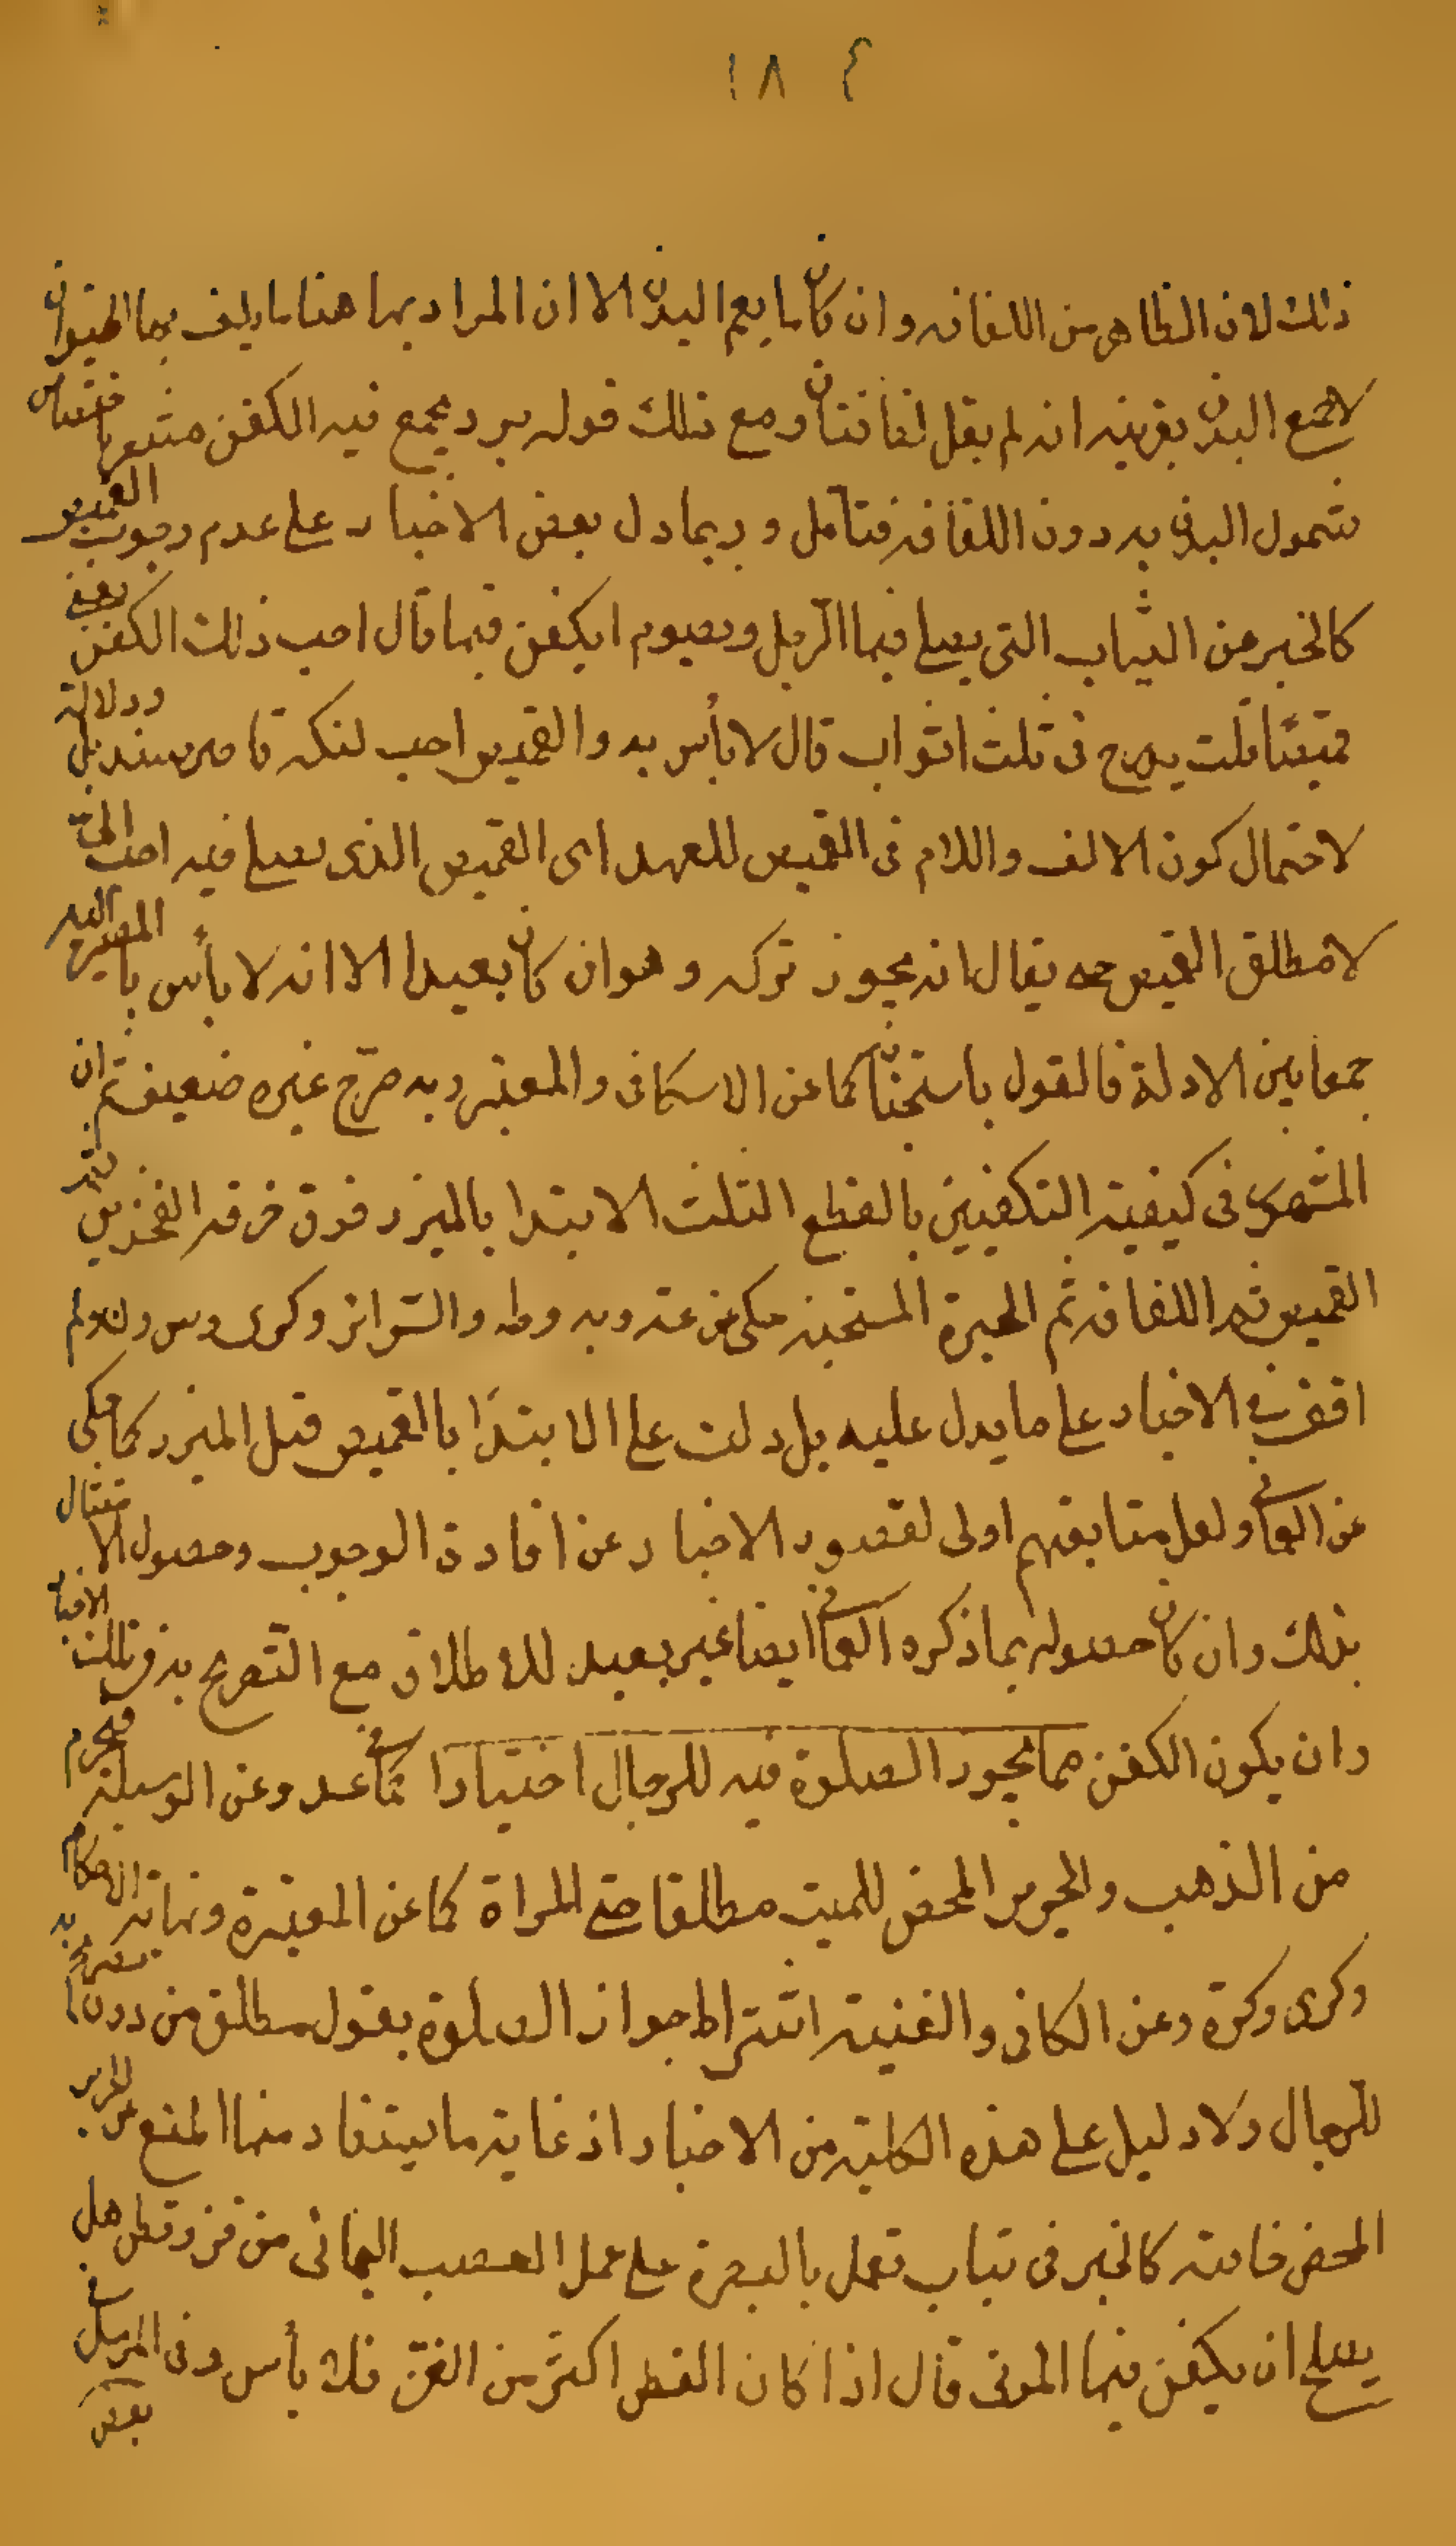 ١٨٤
ذلك لان الظاهر من اللفافه وان كان ما يعم البدن الا ان المراد بها هنا ما يلف بها
لا جميع البدن بقرينه انه لم يقل لفافتان ومع ذلك قوله برد يجمع فيه الكفن مشعر باختصاص
شمول البدن به دون اللفافه فتامل وربما دل بعض الاخبار على عدم وجوب القميص
كالخبر عن الثياب التى يصلى فيها الرجل ويصوم ايكفن فيها قال احب ذلك الكفن يعنى
قميصا قلت يدرج فى ثلث اثواب قال لا بأس به والقميص احب لنكه قاصر سندا بل ودلالة
لاحتمال كون الالف واللام فى القميص للعهد اى القميص الذى يصلى فيه احب الى
لا مطلق القميص حتى يقال انه يجوز تركه وهو ان كان بعيدا الا انه لا بأس بالمصير اليه
جمعا بين الادلة فالقول باستحبابه كما عن الاسكافى والمعتبر وبه صرح غيره ضعيف ثم ان
المشهور فى كيفية التكفين بالقطع الثلث الابتدا بالميزر فوق خرقه الفخذين ثم
القميص ثم اللفافه ثم الحبرة المستحبه حكى عن عد ويه وطه والسرائر وكرى وس ولم
اقف فى الاخبار على ما يدل عليه بل دلت على الابتدا بالقميص قبل الميزر كما حكى
عن العمانى ولعل متابعتهم اولى لقصور الاخبار عن افادة الوجوب وحصول الامتثال
بذلك وان كان حصوله بما ذكره العمانى ايضا غير بعيد للاطلاق مع التصريح به فى تلك الاخبار
وان يكون الكفن مما يجوز الصلوة فيه للرجال اختيارا كما فى عد وعن الوسيلة فيحرم
من الذهب والحرير المحض للميت مطلقا حتى المراة كما عن المعتبرة ونهاية الاحكام
وكرى وكرة وعن الكافى والغنية اشتراط جواز الصلوة بقول مطلق من دون تصريح به
للرجال ولا دليل على هذه الكلية من الاخبار اذ غاية ما يستفاد منها المنع عن الحرير
المحض خاصه كالخبر فى ثياب تعمل بالبصرة على عمل العصب اليمانى من قز وقطن هل
يصلح ان يكفن فيها الموتى قال اذا كان القطن اكثر من القز فلا بأس وفى المرسل فى
بعض